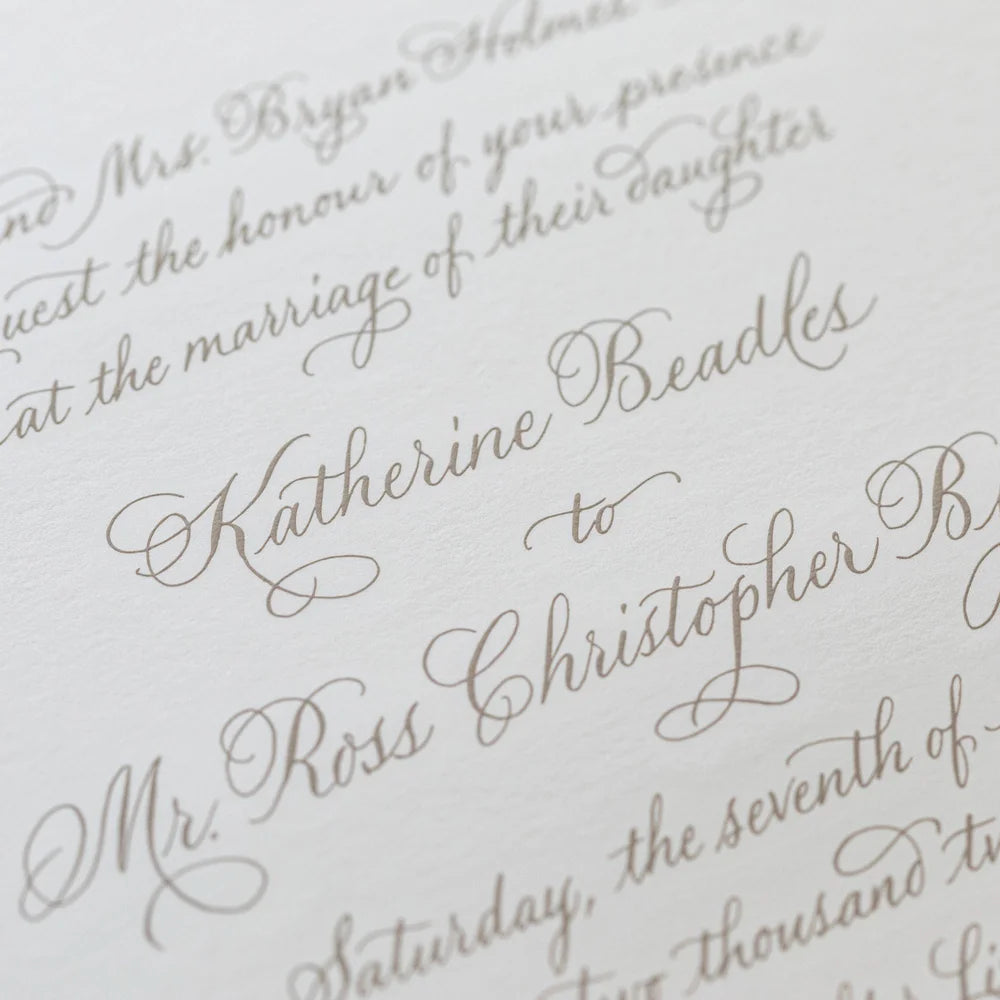 and Mrs. Bryan Holmes
uest the honour of your presence
at the marriage of their daughter
Katherine Beadles
to
Mr. Ross Christopher B
Saturday, the seventh of
two thousand tw
Li